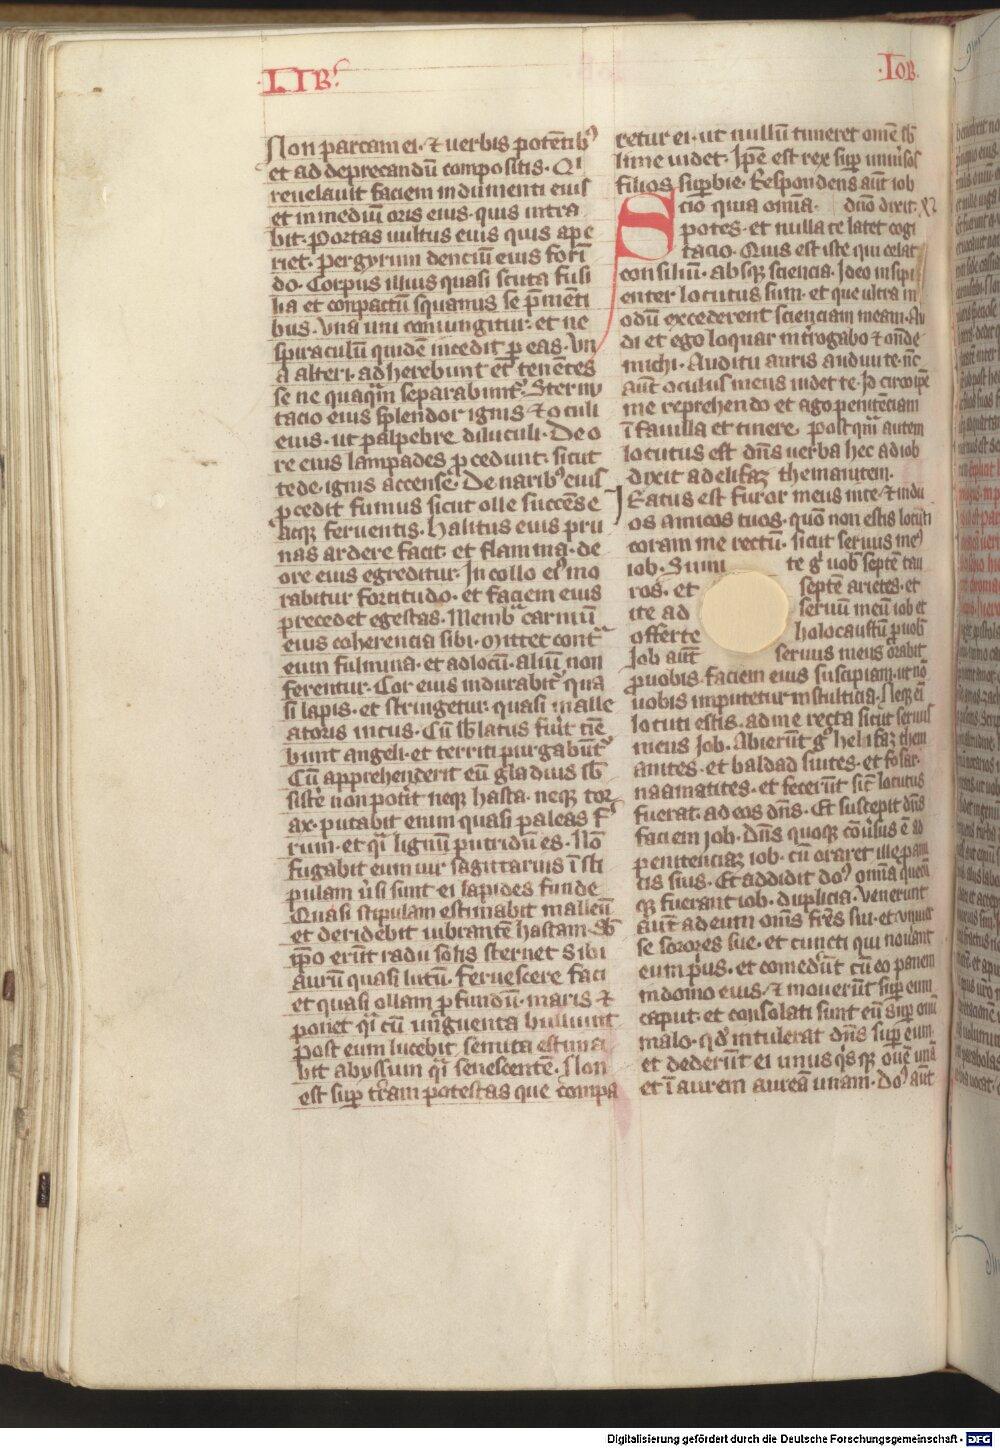 ·LIB·
·IOB·
Non parcam ei· ⁊ uerbis potētib⁹
et ad deprecandū compositis· Qi
reuelauit faciem indumenti eius
et in mediū oris eius· quis intra
bit· Portas uultus eius quis ape
riet· per gyrum dentiū eius formi
do· Corpus illius quasi scuta fusi
lia et conpactū squamis se p̄mēti
bus· Vna uni coniungitur· et ne
spiraculū quidē incedit p eas· Vn
a alteri· adherebunt et tenētes
se ne quaq̄m separabunt᷑· Sternu
tacio eius splendor ignis ⁊ oculi
eius· ut palpebre diluculi· De o
re eius lampades pcedunt· sicut
tede· ignis accense· De narib⁹ eius
pcedit fumus sicut olle succēse
atq; feruentis· Halitus eius pru
nas ardere facit· et flamma· de
ore eius egreditur· In collo ei⁹ mo
rabitur fortitudo· et faciem eius
precedet egestas· Memb̄ carniū
eius coherencia sibi· Mittet cont̄
eum fulmina· et ad locū· aliū non
ferentur· Cor eius indurabit᷑ qua
si lapis· et stringetur· quasi malle
atoris incus· Cū sb̄latus fu̓it tie
bunt angeli· et territi purgabūt᷑
Cū apprehenderit eū gladius sb̄
sistē non pot̓it neq; hasta· neq; tor
ax· putabit enim quasi paleas f̄
rum· et q̄i lignū putridū es· Nō
fugabit eum uir sagittarius ī sti
pulam ūsi sunt ei lapides funde
Quasi stipulam estimabit malleū
et deridebit uibrantē hastam· Sb̄
ip̄o erūt radii solis sternet sibi
aurū quasi lutū· feruescere faci
et quasi ollam p fundū· maris ⁊
ponet q̄i cū unguenta bulliunt
post eum lucebit semita estima
bit abyssum q̄i senescentē· Non
est sup tr̄am potestas que compa
retur ei· ut nullū timeret om̄e sb̄
lime uidet· Ip̄e est rex sup uniu̓sos
filios supbie· Respondens aūt iob
Scio quia om̄ia· dn̄o dixit·
potes· et nulla te latet cogi
tacio· Quis est iste qui celat
consiliū· absq; sciencia· Ideo insipi
enter locutus sum· et que ultra m
odū excederent scienciam meam· Au
di et ego loquar int̓rogabo ⁊ ōnde
michi· Auditu auris audiui te· nc̄
aūt oculus meus uidet te· Id circo ip̄e
me reprehendo et ago penitēciam
ī fauilla et cinere· postq̄m autem
locutus est dn̄s uerba hec ad iob
dixit ad elifaz themanitem·
Iratus est furor meus in te· ⁊ in du
os amicos tuos· quō non estis locuti
coram me rectū· sicut seruus me⁹
iob· Sumi te gͦ uob̄ septē tau
ros· et septē arietes· et
ite ad seruū meū iob et
offerte holocaustū p uob̄
Iob aūt seruus meus orabit
p uobis· faciem eius suscipiam· ut nō
uobis imputetur in stulticia· Neq; eī
locuti estis· ad me recta sicut seruus
meus Iob· Abierūt gͦ helifaz them
anites· et baldad suites· et sofar·
naamatites· et fecerūt sic̄ locutus
fuerat· ad eos dn̄s· Et suscepit dn̄s
faciem iob· Dn̄s quoq; cōu̓sus ē ad
penitenciā iob· cū oraret ille p ami
cis suis· Et addidit do⁹ om̄ia quecū
q; fuerant iob· duplicia· Venerunt
aūt ad eum om̄s fr̄es sui· et uniuer
se sorores sue· et cuncti qui nouant
eum p̓us· et comedūt cū eo panem
in domo eius· ⁊ mouerūt sup eum
caput· et consolati sunt eū sup om̄i
malo· qd̄ intulerat dn̄s sup eum·
et dederūt ei unus q̓sq; ouē unā
et ī aurem aureā unam· Do⁹ aūt
Digitalisierung gefördert durch die Deutsche Forschungsgemeinschaft - DFG